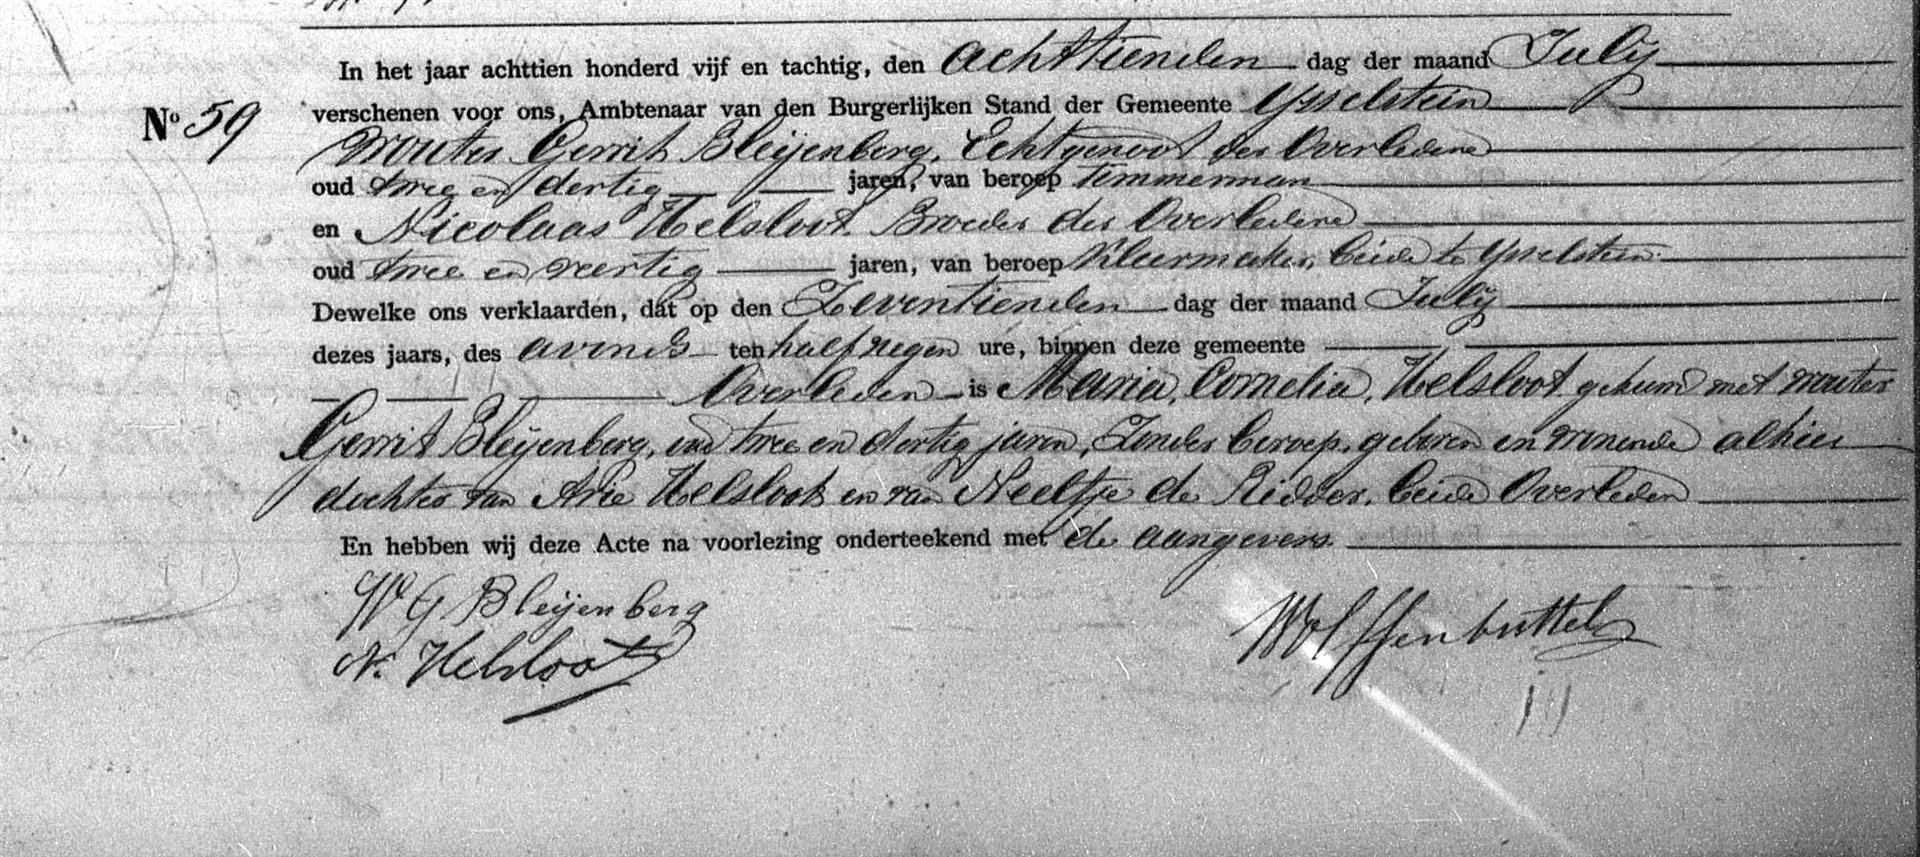 In het jaar achttien honderd vijf en tachtig, den achttienden dag der maand July
No 59
verschenen voor ons, Ambtenaar van den Burgerlijken Stand der Gemeente Ysselstein
Wouter Gerrit Bleijenberg, Echtgenoot der Overledene
oud twee en dertig jaren, van beroep timmerman
en Nicolaas Helsloot Broeder der Overledene
oud twee en veertig jaren, van beroep Kleermaker, beide te Ysselstein.
Dewelke ons verklaarden, dat op den Zeventienden dag der maand July
dezes jaars, des avonds ten half negen ure, binnen deze gemeente
Overleden is Maria, Cornelia, Helsloot gehuwd met Wouter
Gerrit Bleijenberg, oud twee en dertig jaren, Zonder beroep, geboren en wonende alhier
dochter van Arie Helsloot en van Neeltje de Ridder, beide Overleden
En hebben wij deze Acte na voorlezing onderteekend met de aangevers.
W G Bleijenberg
N. Helsloot
Wolffenbuttel